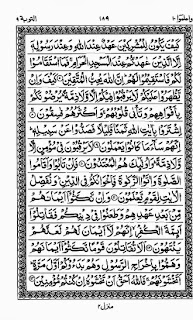 واعلموٓا ١٠ ١٨٩ التوبة ٩
كَيْفَ يَكُوْنُ لِلْمُشْرِكِيْنَ عَهْدٌ عِنْدَ اللّٰهِ وَعِنْدَ رَسُوْلِهٖٓ
اِلَّا الَّذِيْنَ عٰهَدْتُّمْ عِنْدَ الْمَسْجِدِ الْحَرَامِ ۚ فَمَا اسْتَقَامُوْا
لَكُمْ فَاسْتَقِيْمُوْا لَهُمْ ؕ اِنَّ اللّٰهَ يُحِبُّ الْمُتَّقِيْنَ ۝ كَيْفَ وَاِنْ
يَّظْهَرُوْا عَلَيْكُمْ لَا يَرْقُبُوْا فِيْكُمْ اِلًّا وَّلَا ذِمَّةً ؕ يُرْضُوْنَكُمْ
بِاَفْوَاهِهِمْ وَتَاْبٰى قُلُوْبُهُمْ ۚ وَاَكْثَرُهُمْ فٰسِقُوْنَ ۝
اِشْتَرَوْا بِاٰيٰتِ اللّٰهِ ثَمَنًا قَلِيْلًا فَصَدُّوْا عَنْ سَبِيْلِهٖ ؕ
اِنَّهُمْ سَآءَ مَا كَانُوْا يَعْمَلُوْنَ ۝ لَا يَرْقُبُوْنَ فِيْ مُؤْمِنٍ اِلًّا
وَّلَا ذِمَّةً ؕ وَاُولٰٓئِكَ هُمُ الْمُعْتَدُوْنَ ۝ فَاِنْ تَابُوْا وَاَقَامُوا
الصَّلٰوةَ وَاٰتَوُا الزَّكٰوةَ فَاِخْوَانُكُمْ فِي الدِّيْنِ ؕ وَنُفَصِّلُ
الْاٰيٰتِ لِقَوْمٍ يَّعْلَمُوْنَ ۝ وَاِنْ نَّكَثُوْٓا اَيْمَانَهُمْ
مِّنْۢ بَعْدِ عَهْدِهِمْ وَطَعَنُوْا فِيْ دِيْنِكُمْ فَقَاتِلُوْٓا
اَئِمَّةَ الْكُفْرِ ۙ اِنَّهُمْ لَآ اَيْمَانَ لَهُمْ لَعَلَّهُمْ
يَنْتَهُوْنَ ۝ اَلَا تُقَاتِلُوْنَ قَوْمًا نَّكَثُوْٓا اَيْمَانَهُمْ
وَهَمُّوْا بِاِخْرَاجِ الرَّسُوْلِ وَهُمْ بَدَءُوْكُمْ اَوَّلَ مَرَّةٍ ؕ
اَتَخْشَوْنَهُمْ ۚ فَاللّٰهُ اَحَقُّ اَنْ تَخْشَوْهُ اِنْ كُنْتُمْ مُّؤْمِنِيْنَ ۝
منزل ٢